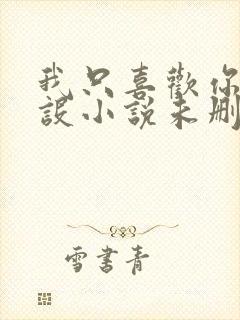 我只喜歡你
設小說未刪
雪書青